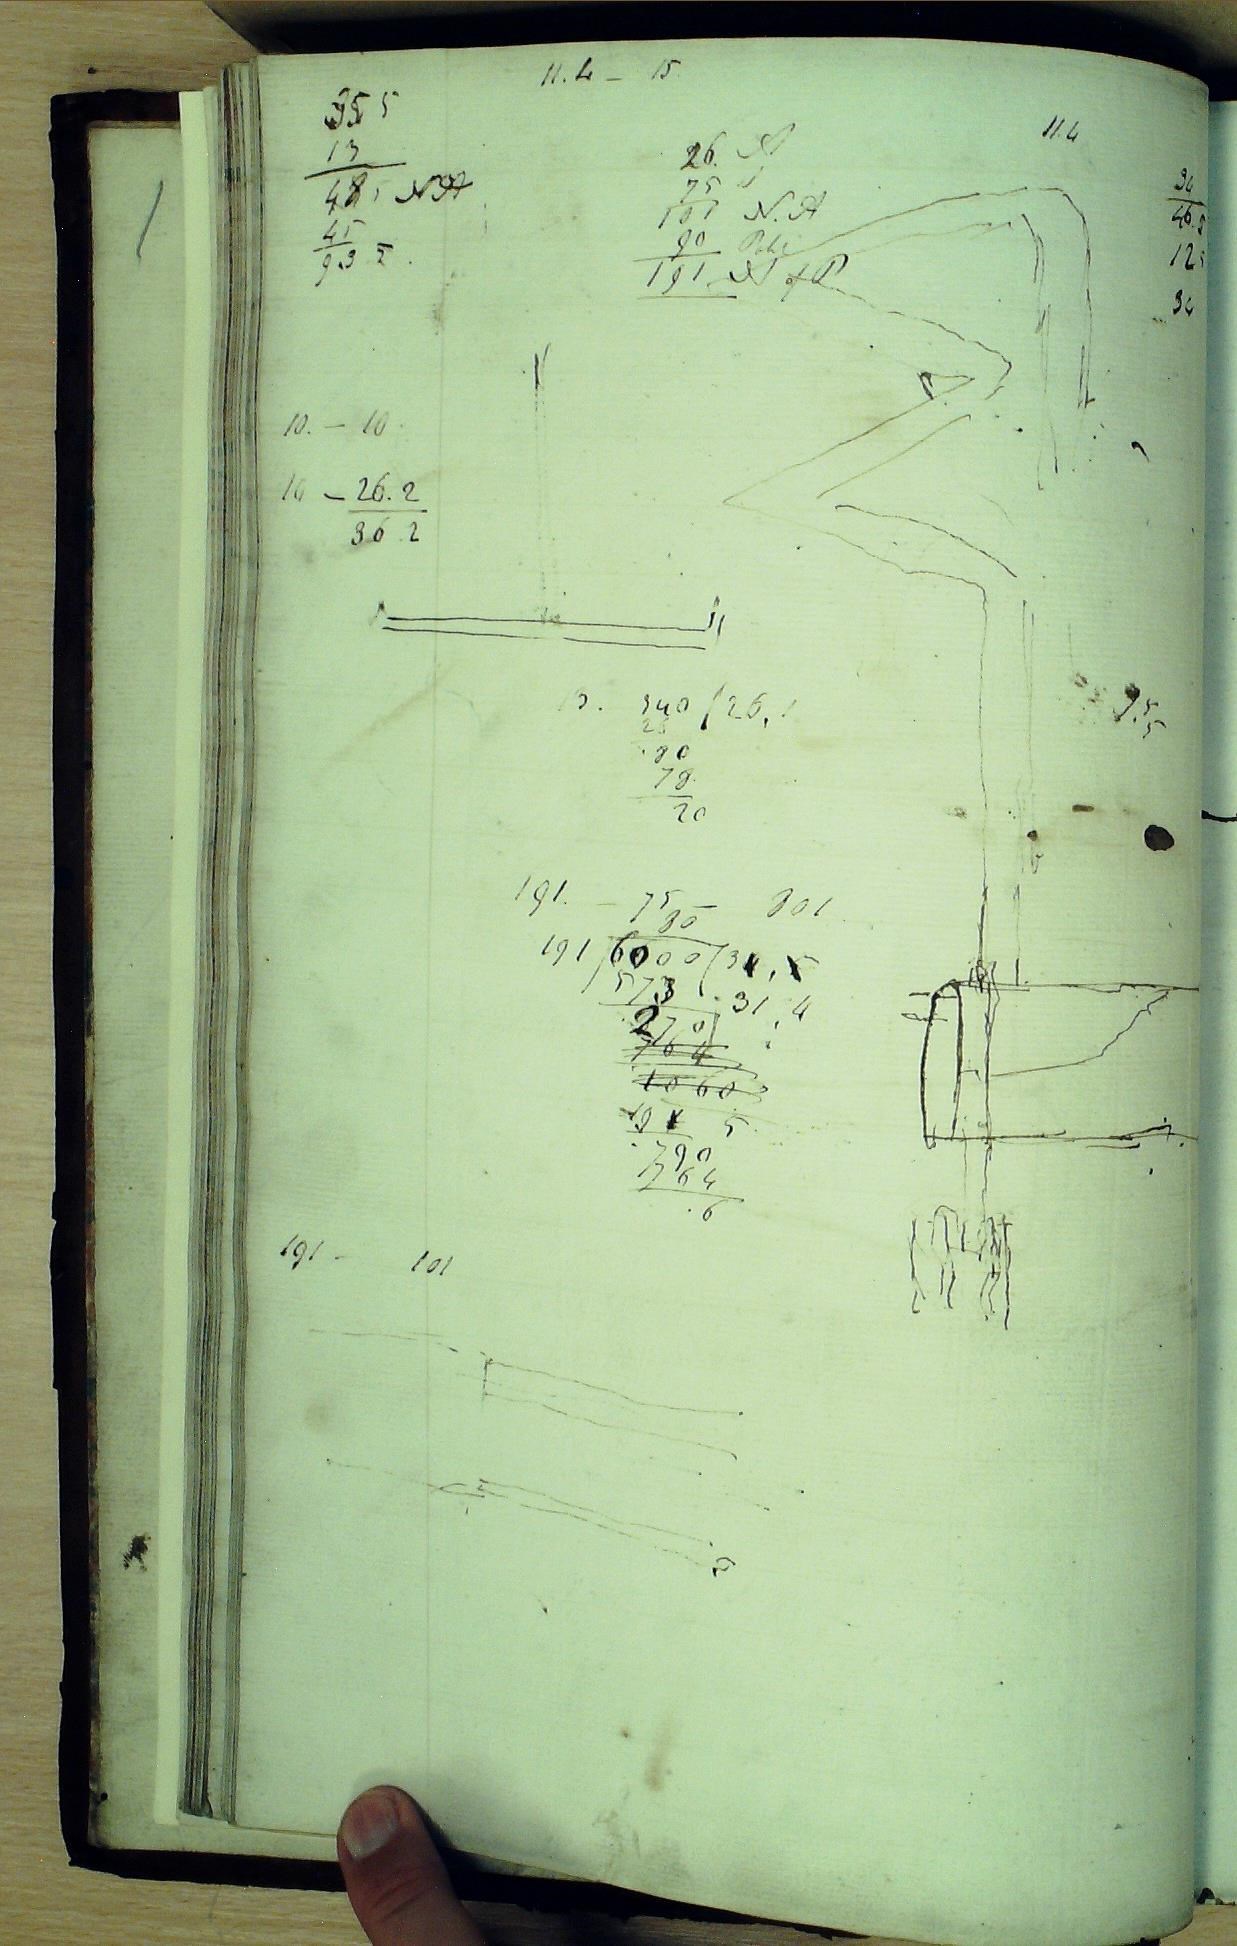 11.4 – 15
35 5
13
48 5 N A
45
93 5
26. A
75
101 N. A
90 Pot
191 N & P
11.4
34
46.5
12 5
34
10. – 10
10 – 26.2
36 2
13. 340 (26,1
26
80
78
20
7.5
5
191. – 75 – 801
80
191 (6000 (31, 5
573 31, 4
270
764
1060
191 5
790
764
6
191 – 101